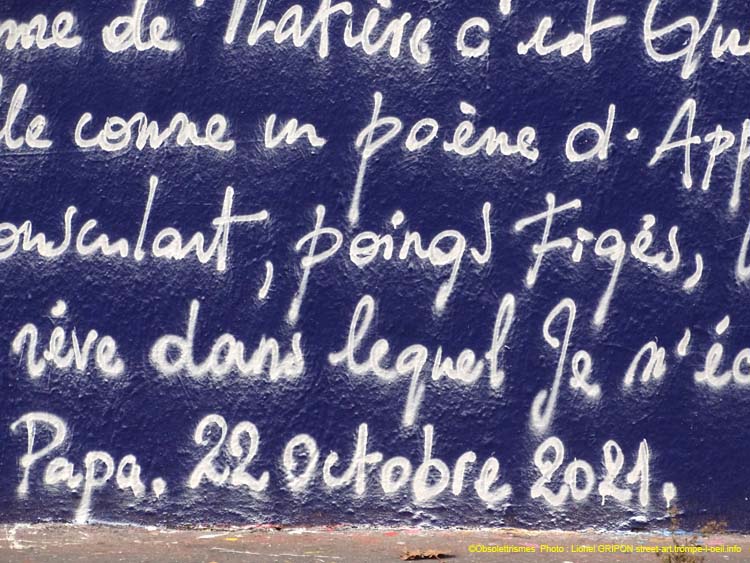 me de Matière c'est Qu
lle comme un poème d'App
ousculant, poings Figés,
rêve dans lequel Je n'éc
Papa. 22 Octobre 2021.
©Obsolettrismes Photo : Lionel GRIPON street-art.trompe-l-oeil.info